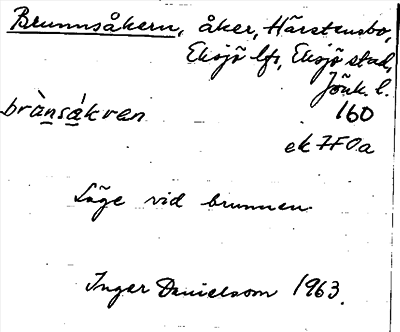 Brunnsåkern, åker, Härstensbo,
Eksjö lfs, Eksjö stad,
Jönk. l.
brànsákren 160
ek 7F0a
Läge vid brunnen.
Inger Danielsson 1963.